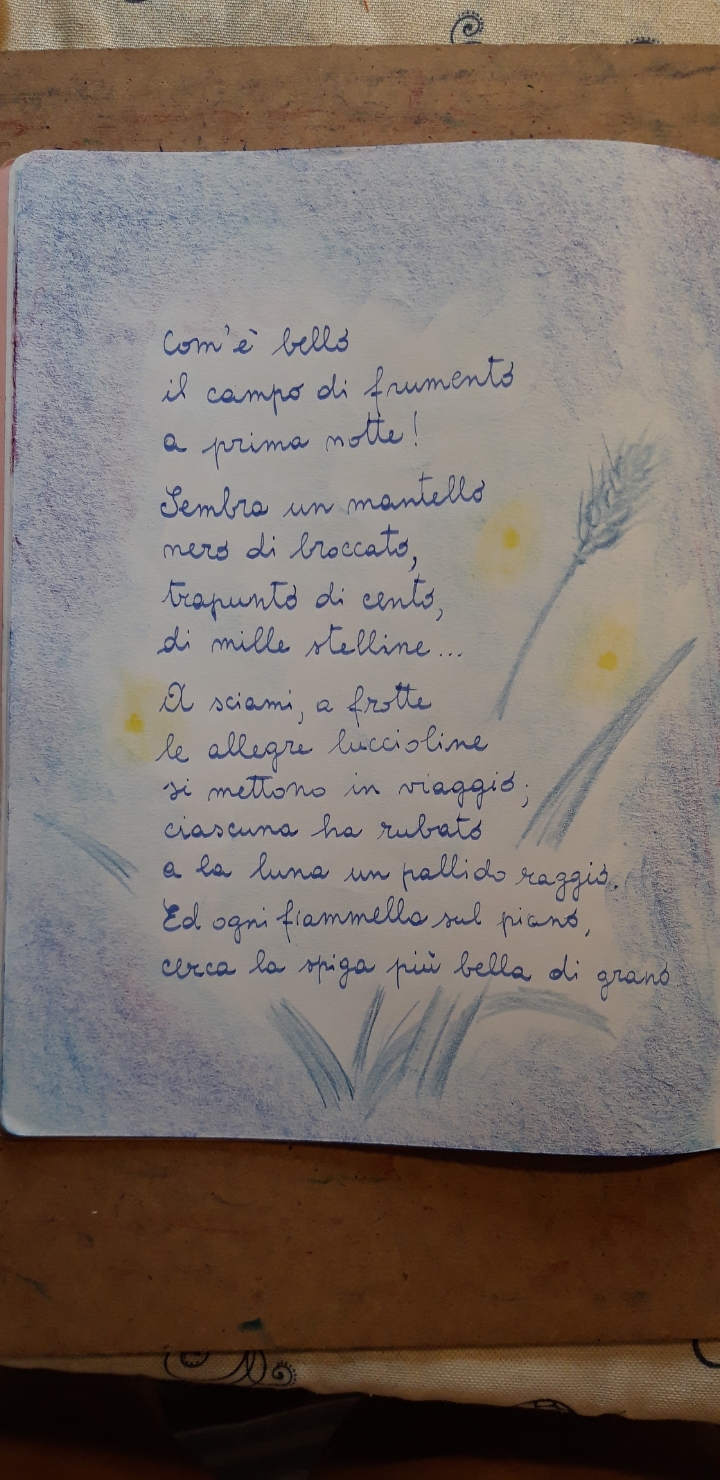 Com'è bello
il campo di frumento
a prima notte!
Sembra un mantello
nero di broccato,
trapunto di cento,
di mille stelline...
A sciami, a frotte
le allegre luccioline
si mettono in viaggio;
ciascuna ha rubato
a la luna un pallido raggio.
Ed ogni fiammella sul piano,
cerca la spiga più bella di grano